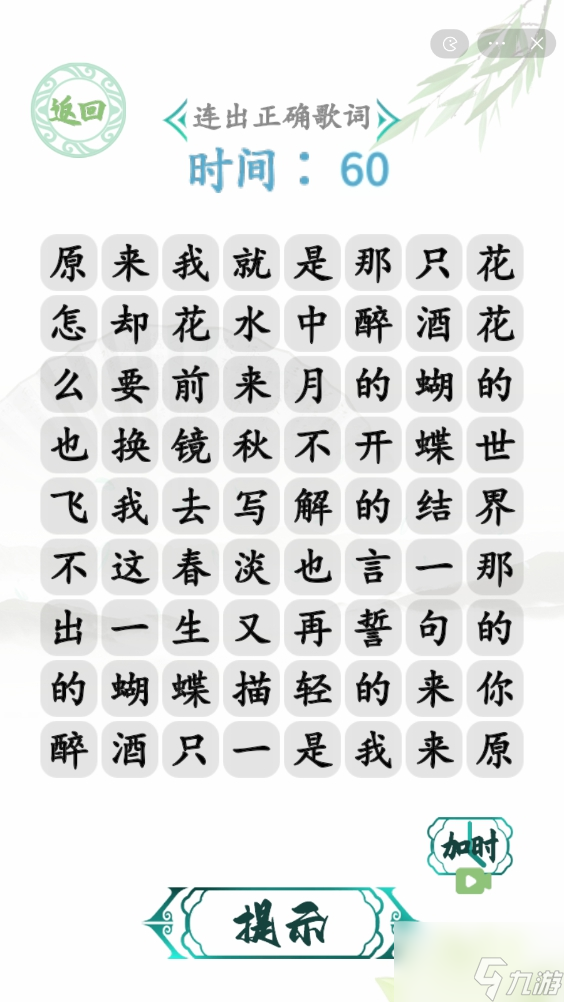 返回
连出正确歌词
时间：60
原来我就是那只花
怎却花水中醉酒花
么要前来月的蝴的
也换镜秋不开蝶世
飞我去写解的结界
不这春淡也言一那
出一生又再誓句的
的蝴蝶描轻的来你
醉酒只一是我来原
加时
提示
九游